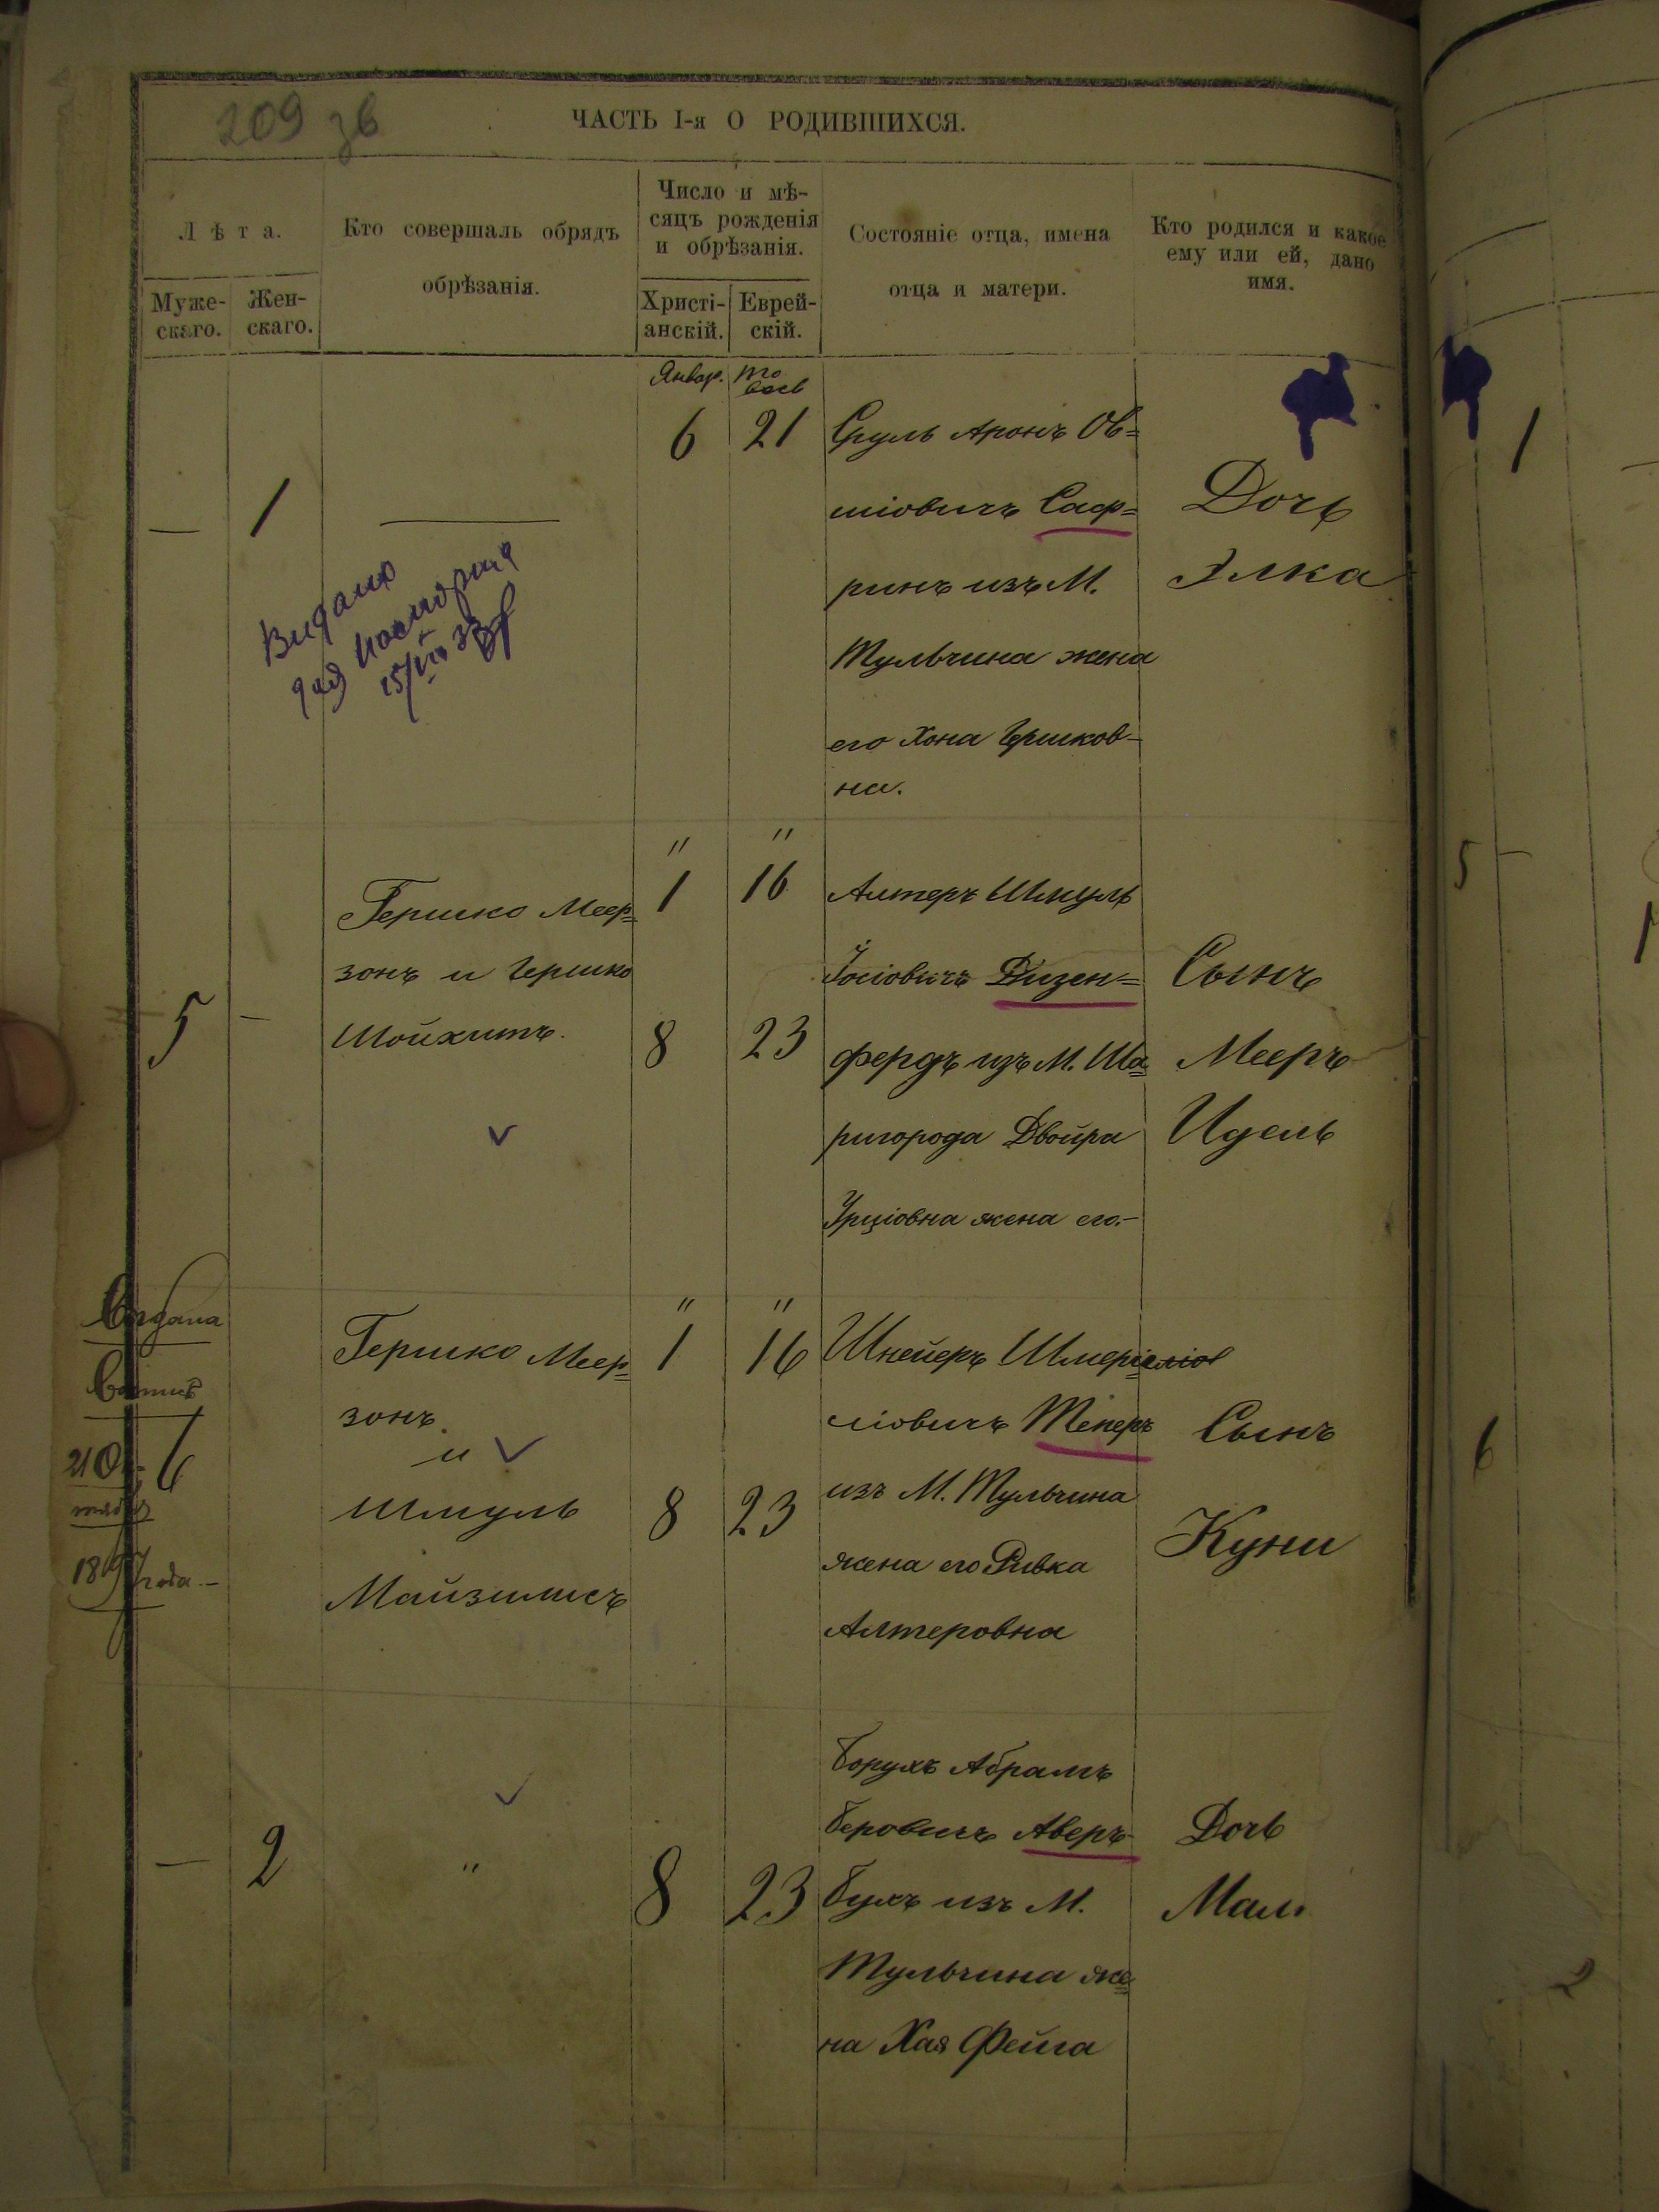 209 зв
ЧАСТЬ I-я О РОДИВШИХСЯ.
Лѣта.
Муже-
скаго.
Жен-
скаго.
Кто совершалъ обрядъ
обрѣзанія.
Число и мѣ-
сяцъ рожденія
и обрѣзанія.
Христі-
анскій.
Еврей-
скій.
Состояніе отца, имена
отца и матери.
Кто родился и какое
ему или ей, дано
имя.
Январ.
— 1
6 21
Сруль Аронъ Ов=
шіовичъ Саф=
ринъ изъ М.
Тульчина жена
его Хона Гершков-
на.
Дочь
Элка
Видано
15/VII 33
5 —
Гершко Меер=
зонъ и Гершко
Шойхитъ.
" "
1 16
8 23
Алтеръ Шмуль
Іосіовичъ Дизен=
фердъ изъ М. Ша=
ригорода Двойра
Урціовна жена его.-
Сынъ
Мееръ
Идель
Видана
210
1897 года.-
6
Гершко Меер=
зонъ
и
Шмуль
Майзлисъ
" "
1 16
8 23
Шнейеръ Шмер
ліовичъ Теперъ
изъ М. Тульчина
жена его Ривка
Алтеровна
Сынъ
Куни
— 2
"
8 23
Борухъ Абрамъ
Беровичъ Авер
бухъ изъ М.
Тульчина же=
на Хая Фейга
Дочь
Мали
1
5
6
2